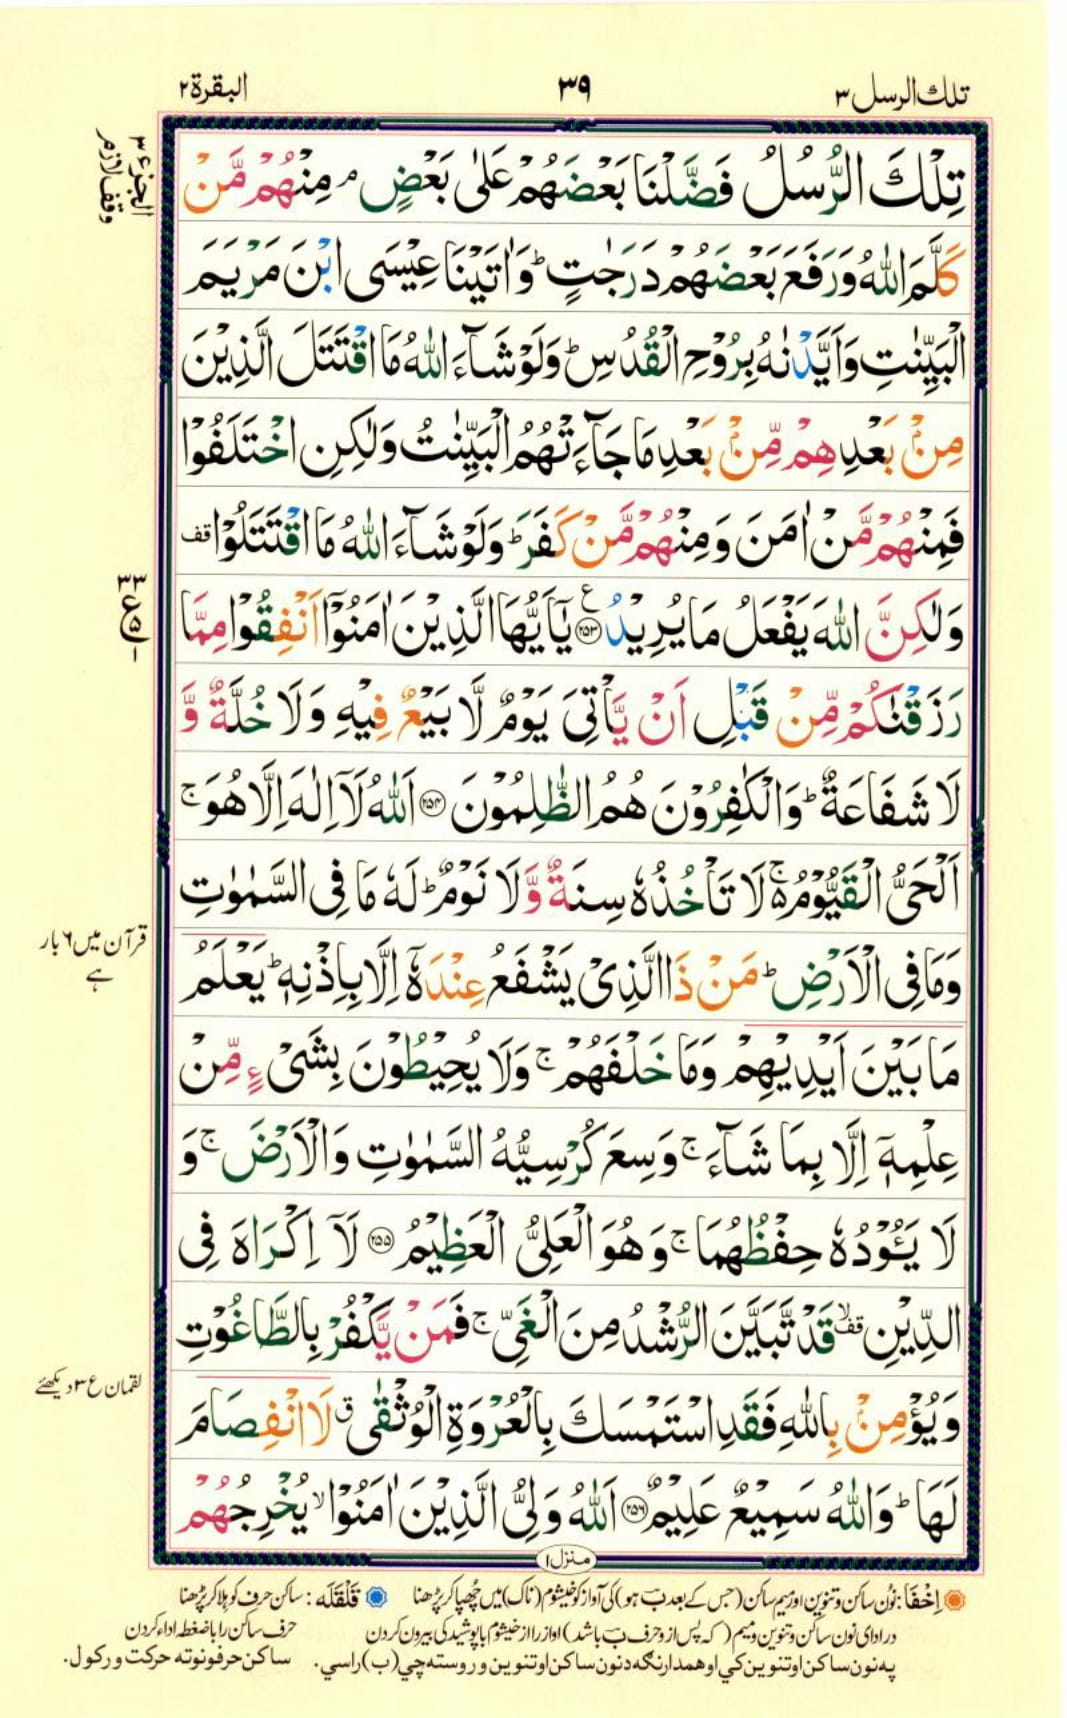 تلك الرسل ٣
٣٩
البقرة ٢
الجزء ٣
وقف لازم
تِلْكَ الرُّسُلُ فَضَّلْنَا بَعْضَهُمْ عَلٰى بَعْضٍ ۘ مِنْهُمْ مَّنْ
كَلَّمَ اللّٰهُ وَرَفَعَ بَعْضَهُمْ دَرَجٰتٍ ؕ وَاٰتَيْنَا عِيْسَى ابْنَ مَرْيَمَ
الْبَيِّنٰتِ وَاَيَّدْنٰهُ بِرُوْحِ الْقُدُسِ ؕ وَلَوْ شَآءَ اللّٰهُ مَا اقْتَتَلَ الَّذِيْنَ
مِنْۢ بَعْدِهِمْ مِّنْۢ بَعْدِ مَا جَآءَتْهُمُ الْبَيِّنٰتُ وَلٰكِنِ اخْتَلَفُوْا
فَمِنْهُمْ مَّنْ اٰمَنَ وَمِنْهُمْ مَّنْ كَفَرَ ؕ وَلَوْ شَآءَ اللّٰهُ مَا اقْتَتَلُوْا قف
وَلٰكِنَّ اللّٰهَ يَفْعَلُ مَا يُرِيْدُ ﴿۲۵۳﴾ ع يٰۤاَيُّهَا الَّذِيْنَ اٰمَنُوْۤا اَنْفِقُوْا مِمَّا
٣٣
ع
٥
١
رَزَقْنٰكُمْ مِّنْ قَبْلِ اَنْ يَّاْتِيَ يَوْمٌ لَّا بَيْعٌ فِيْهِ وَلَا خُلَّةٌ وَّ
لَا شَفَاعَةٌ ؕ وَالْكٰفِرُوْنَ هُمُ الظّٰلِمُوْنَ ﴿۲۵۴﴾ اَللّٰهُ لَاۤ اِلٰهَ اِلَّا هُوَ ۚ
اَلْحَيُّ الْقَيُّوْمُ ۚ۬ لَا تَاْخُذُهٗ سِنَةٌ وَّلَا نَوْمٌ ؕ لَهٗ مَا فِى السَّمٰوٰتِ
قرآن میں ٦ بار ہے
وَمَا فِى الْاَرْضِ ؕ مَنْ ذَا الَّذِيْ يَشْفَعُ عِنْدَهٗۤ اِلَّا بِاِذْنِهٖ ؕ يَعْلَمُ
مَا بَيْنَ اَيْدِيْهِمْ وَمَا خَلْفَهُمْ ۚ وَلَا يُحِيْطُوْنَ بِشَىْءٍ مِّنْ
عِلْمِهٖۤ اِلَّا بِمَا شَآءَ ۚ وَسِعَ كُرْسِيُّهُ السَّمٰوٰتِ وَالْاَرْضَ ۚ وَ
لَا يَـُٔوْدُهٗ حِفْظُهُمَا ۚ وَهُوَ الْعَلِيُّ الْعَظِيْمُ ﴿۲۵۵﴾ لَاۤ اِكْرَاهَ فِى
الدِّيْنِ ۙ قف قَدْ تَّبَيَّنَ الرُّشْدُ مِنَ الْغَيِّ ۚ فَمَنْ يَّكْفُرْ بِالطَّاغُوْتِ
لقمان ع ٣ دیکھئے
وَيُؤْمِنْۢ بِاللّٰهِ فَقَدِ اسْتَمْسَكَ بِالْعُرْوَةِ الْوُثْقٰى ق لَا انْفِصَامَ
لَهَا ؕ وَاللّٰهُ سَمِيْعٌ عَلِيْمٌ ﴿۲۵۶﴾ اَللّٰهُ وَلِيُّ الَّذِيْنَ اٰمَنُوْا ۙ يُخْرِجُهُمْ
منزل ١
اِخْفَا: نُون ساکن و تنوین اور میم ساکن (جس کے بعد ب ہو) کی آواز کو خیشوم (ناک) میں چُھپا کر پڑھنا قَلْقَلَہ: ساکن حرف کو ہلا کر پڑھنا
در ادای نون ساکن و تنوین و میم (که پس از و حرف ب باشد) اواز را از خیشوم با پوشیدگی بیرون کردن حرف ساکن را با ضغطه اداء کردن
په نون ساکن او تنوین کي او همدارنګه د نون ساکن او تنوین وروسته چي (ب) راسي. ساکن حرفونو ته حرکت ورکول.